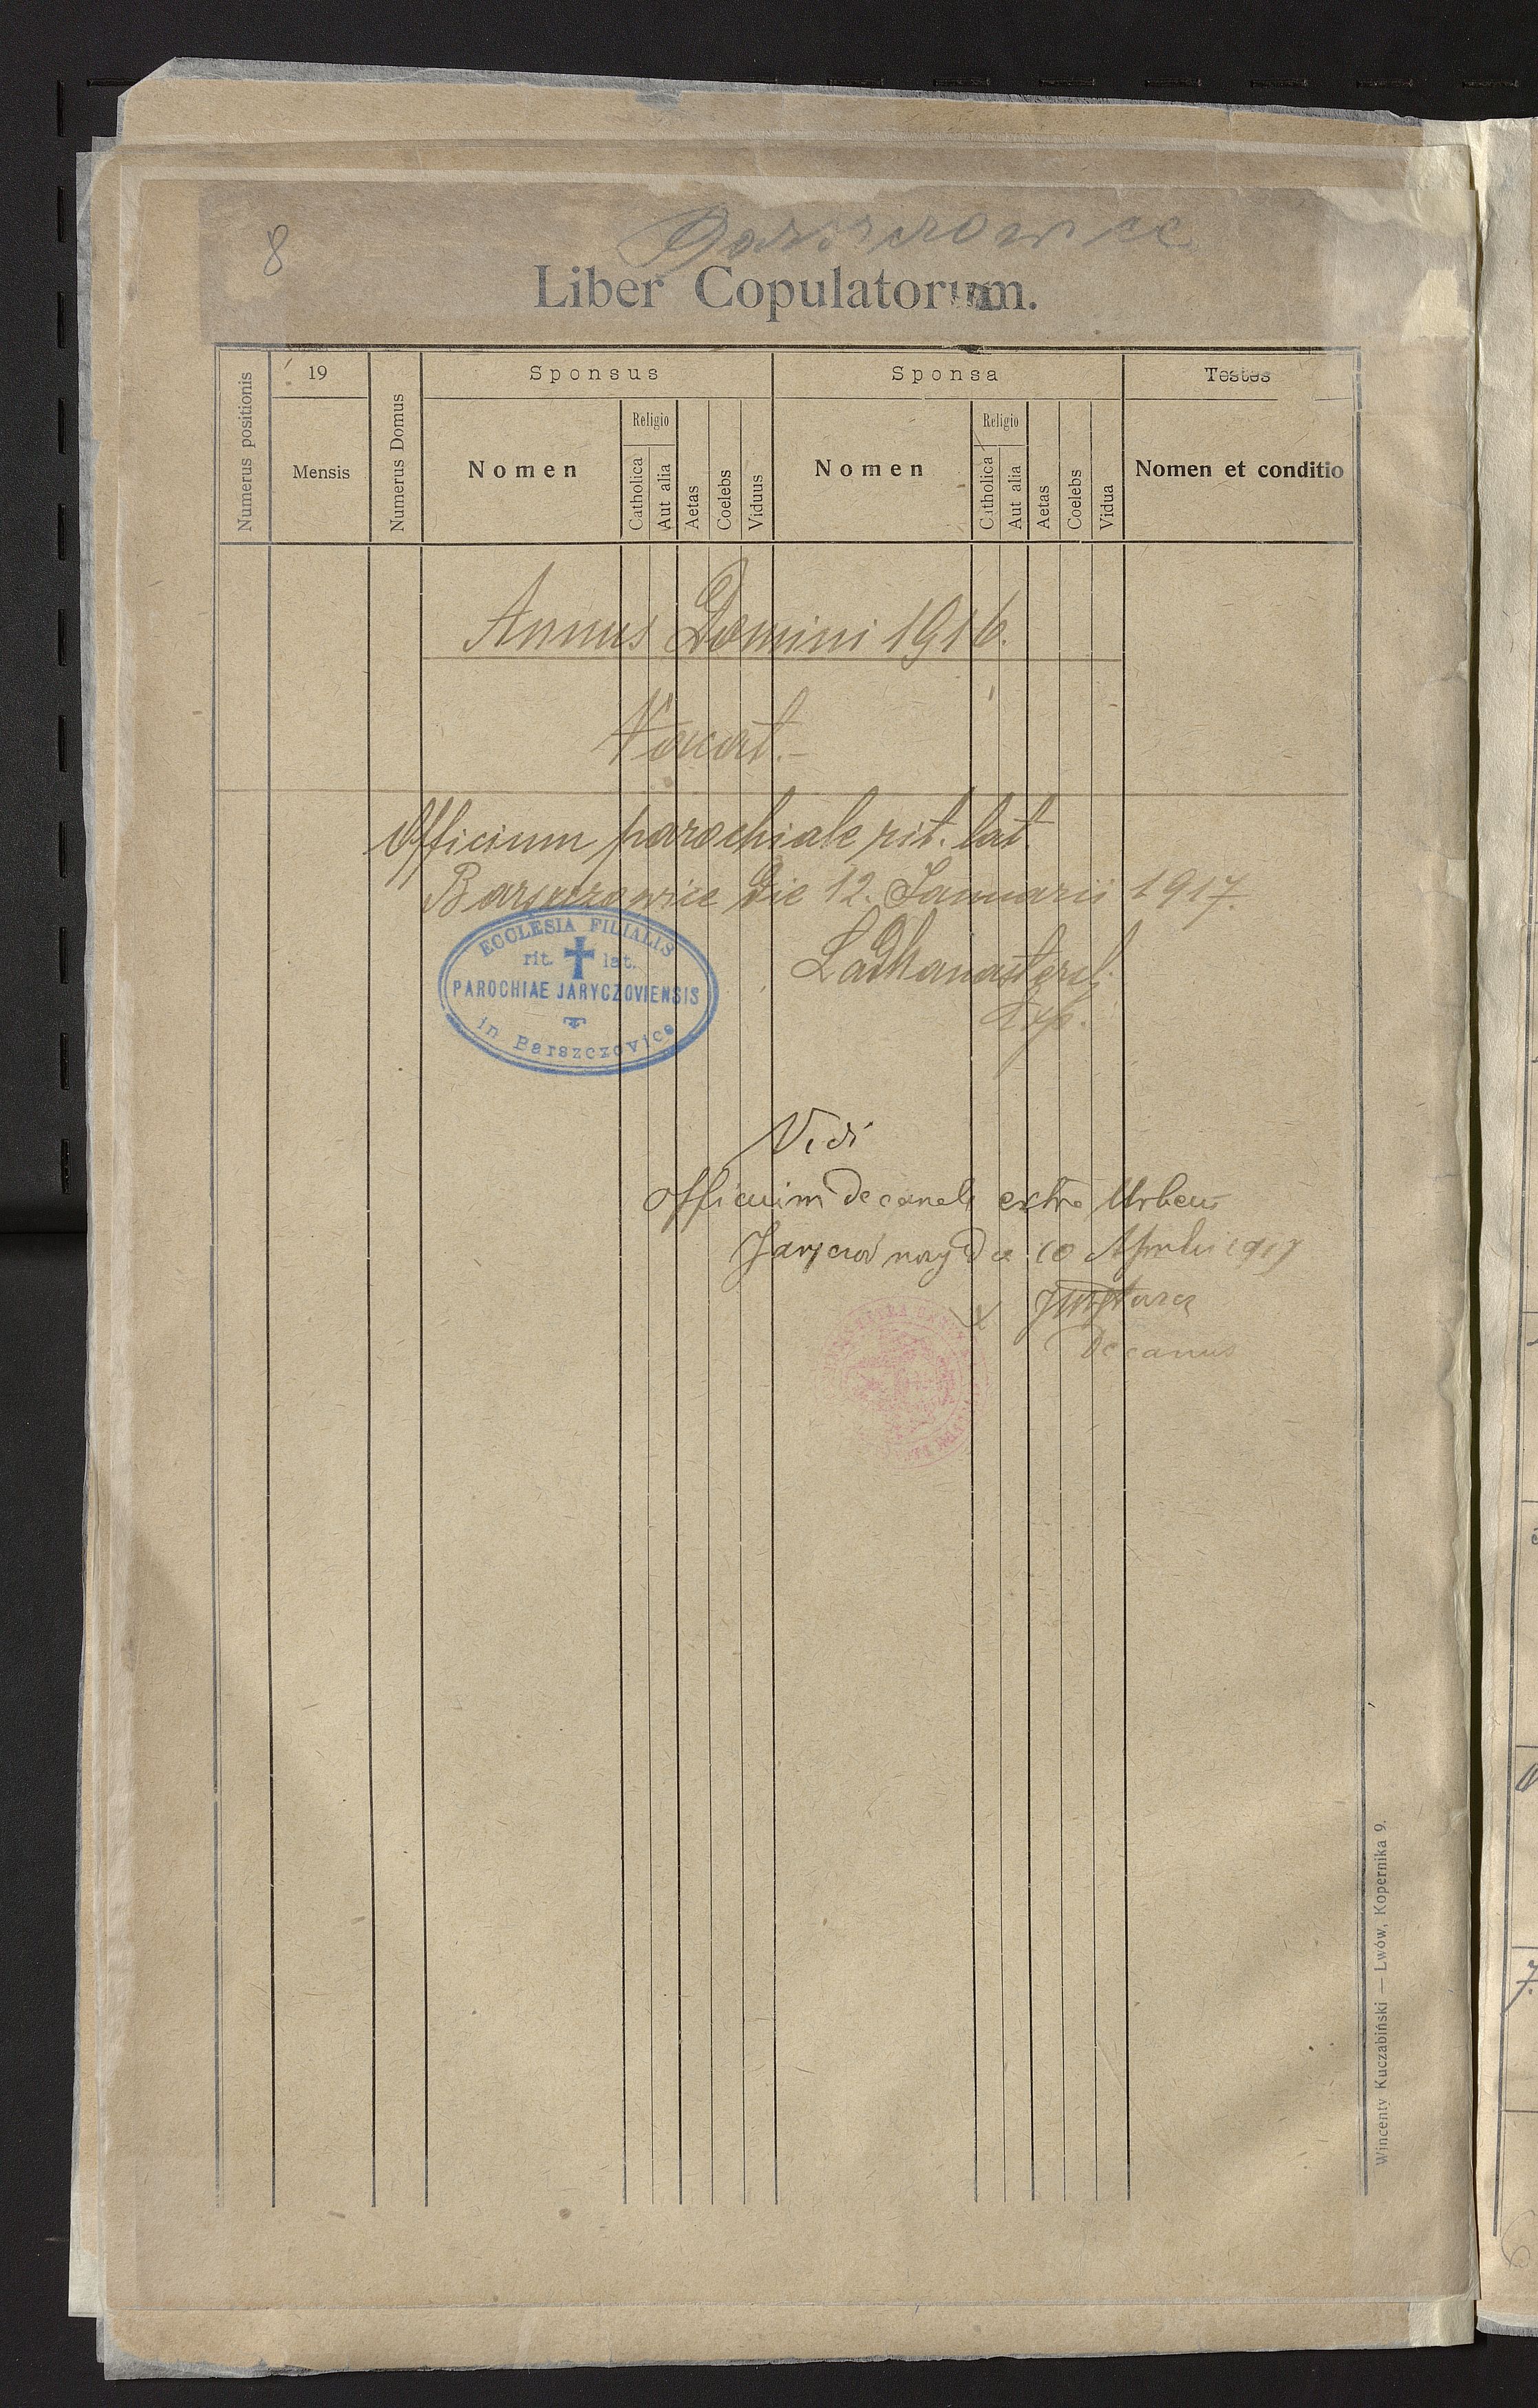 8
Barszczowice
Liber Copulatorum.
Numerus positionis
19
Mensis
Numerus Domus
Sponsus
Nomen
Religio
Catholica
Aut alia
Aetas
Coelebs
Viduus
Sponsa
Nomen
Religio
Catholica
Aut alia
Aetas
Coelebs
Vidua
Testes
Nomen et conditio
Annus Domini 1916.
Vacat.-
Officium parochiale rit. lat.
Barszczowice die 12. Januarii 1917.
ECCLESIA FILIALIS
rit. lat.
PAROCHIAE JARYCZOVIENSIS
in Barszczovice
Exp.
Vidi
Officium decanale extra Urbem
die 10 Aprilis 1917
Decanus
Wincenty Kuczabiński — Lwów, Kopernika 9.